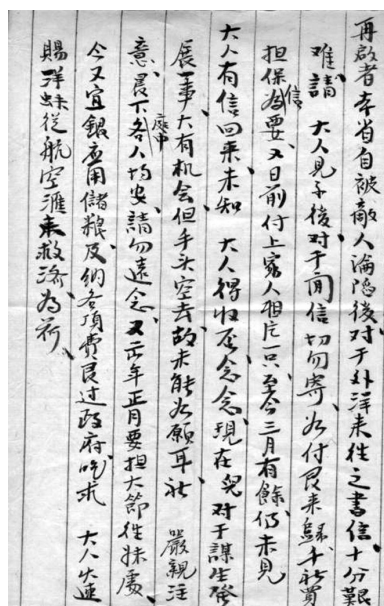 再啟者本省自被敵人淪陷後對于外洋来往之書信十分艱
难請 大人見字後對于閒信切勿寄如付艮来綠十祈買
担保信為要又日前付上家人相片一只至今三月有餘仍未見
大人有信回来未知 大人得收否念念現在兒對于謀生發
展事大有机会但手头空乏故未能如願耳祈 嚴親注
意晨下各庭中人均安請勿遠念又正年正月要担大節往妹處
今又宜銀应用儲粮及納各項費艮过政府吃求 大人火速
賜洋蚨從航空滙来救济為荷